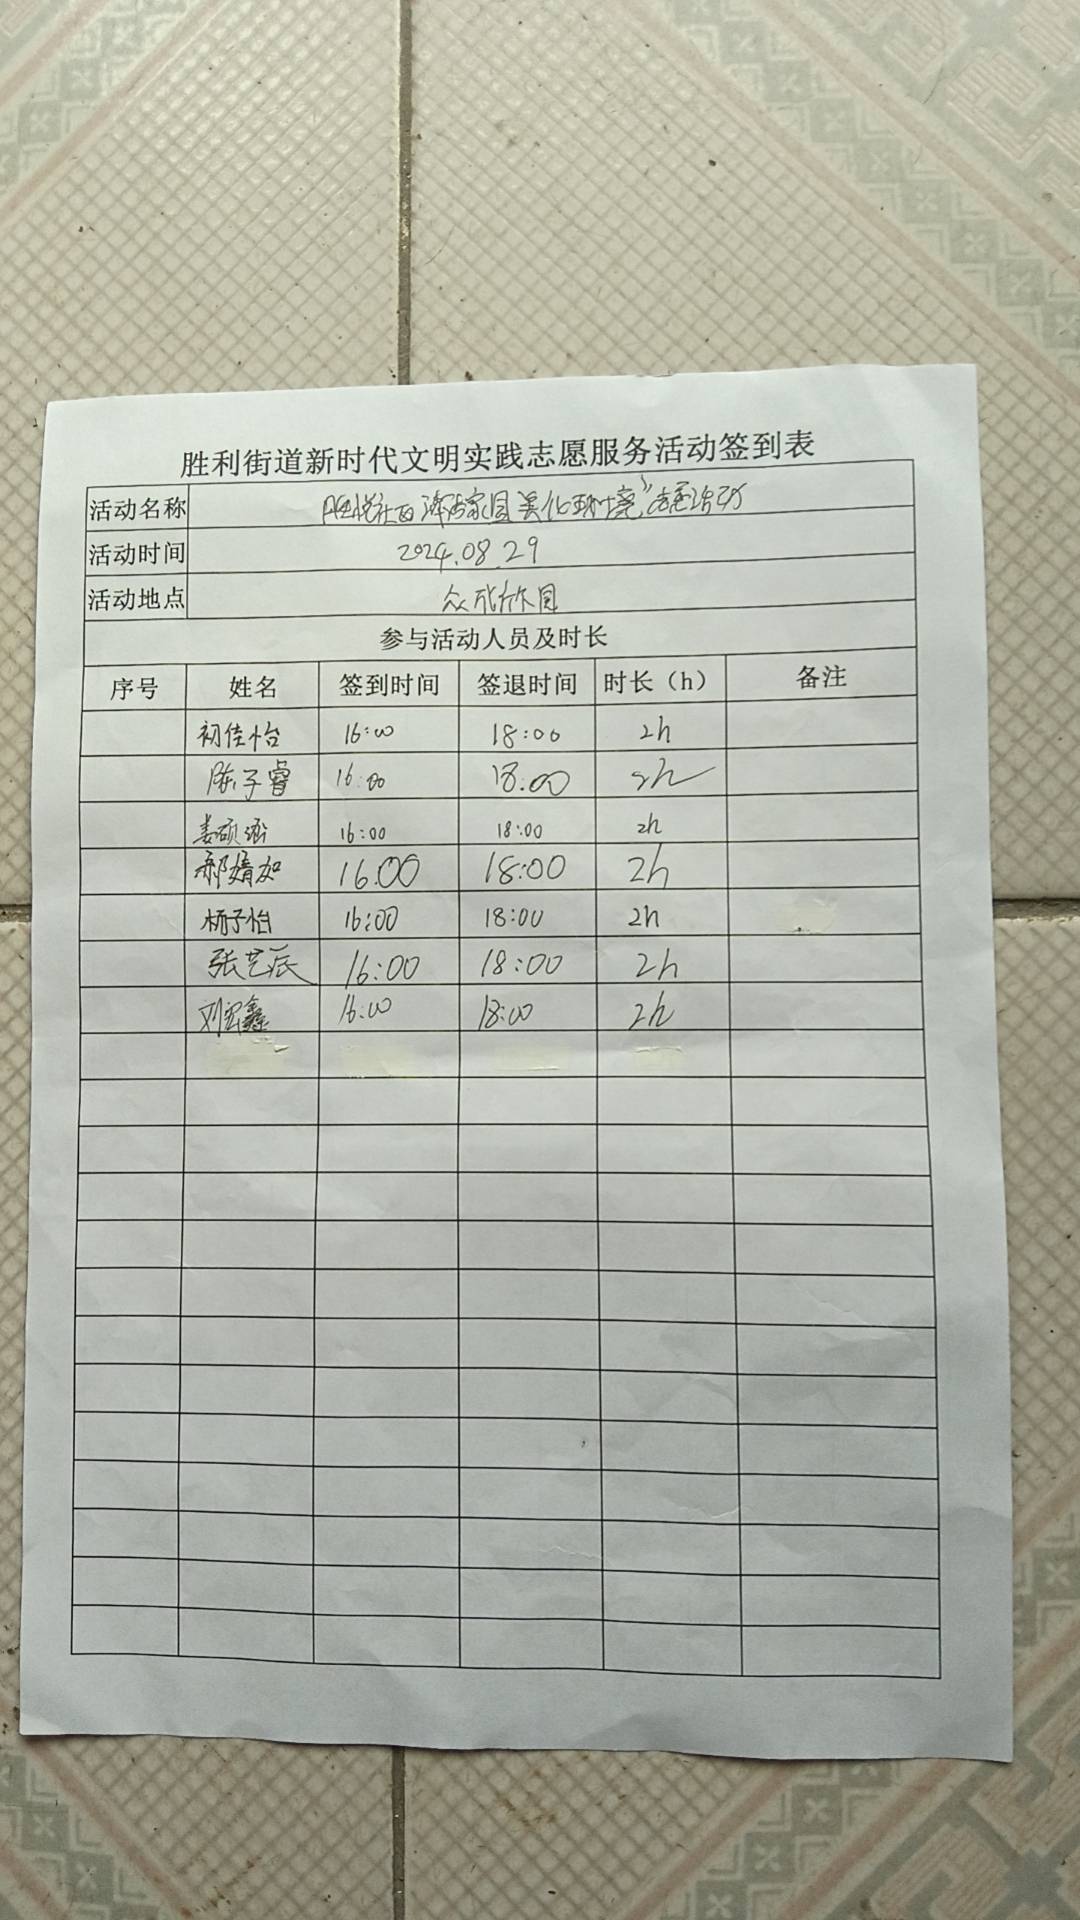 胜利街道新时代文明实践志愿服务活动签到表
活动名称 社区 家园 美化环境" 志愿活动
活动时间 2024.08.29
活动地点 众成欣园
参与活动人员及时长
序号 姓名 签到时间 签退时间 时长（h） 备注
初佳怡 16:00 18:00 2h
陈子睿 16:00 18:00 2h
姜硕涵 16:00 18:00 2h
郝婧如 16:00 18:00 2h
杨子怡 16:00 18:00 2h
张艺辰 16:00 18:00 2h
刘宏鑫 16:00 18:00 2h